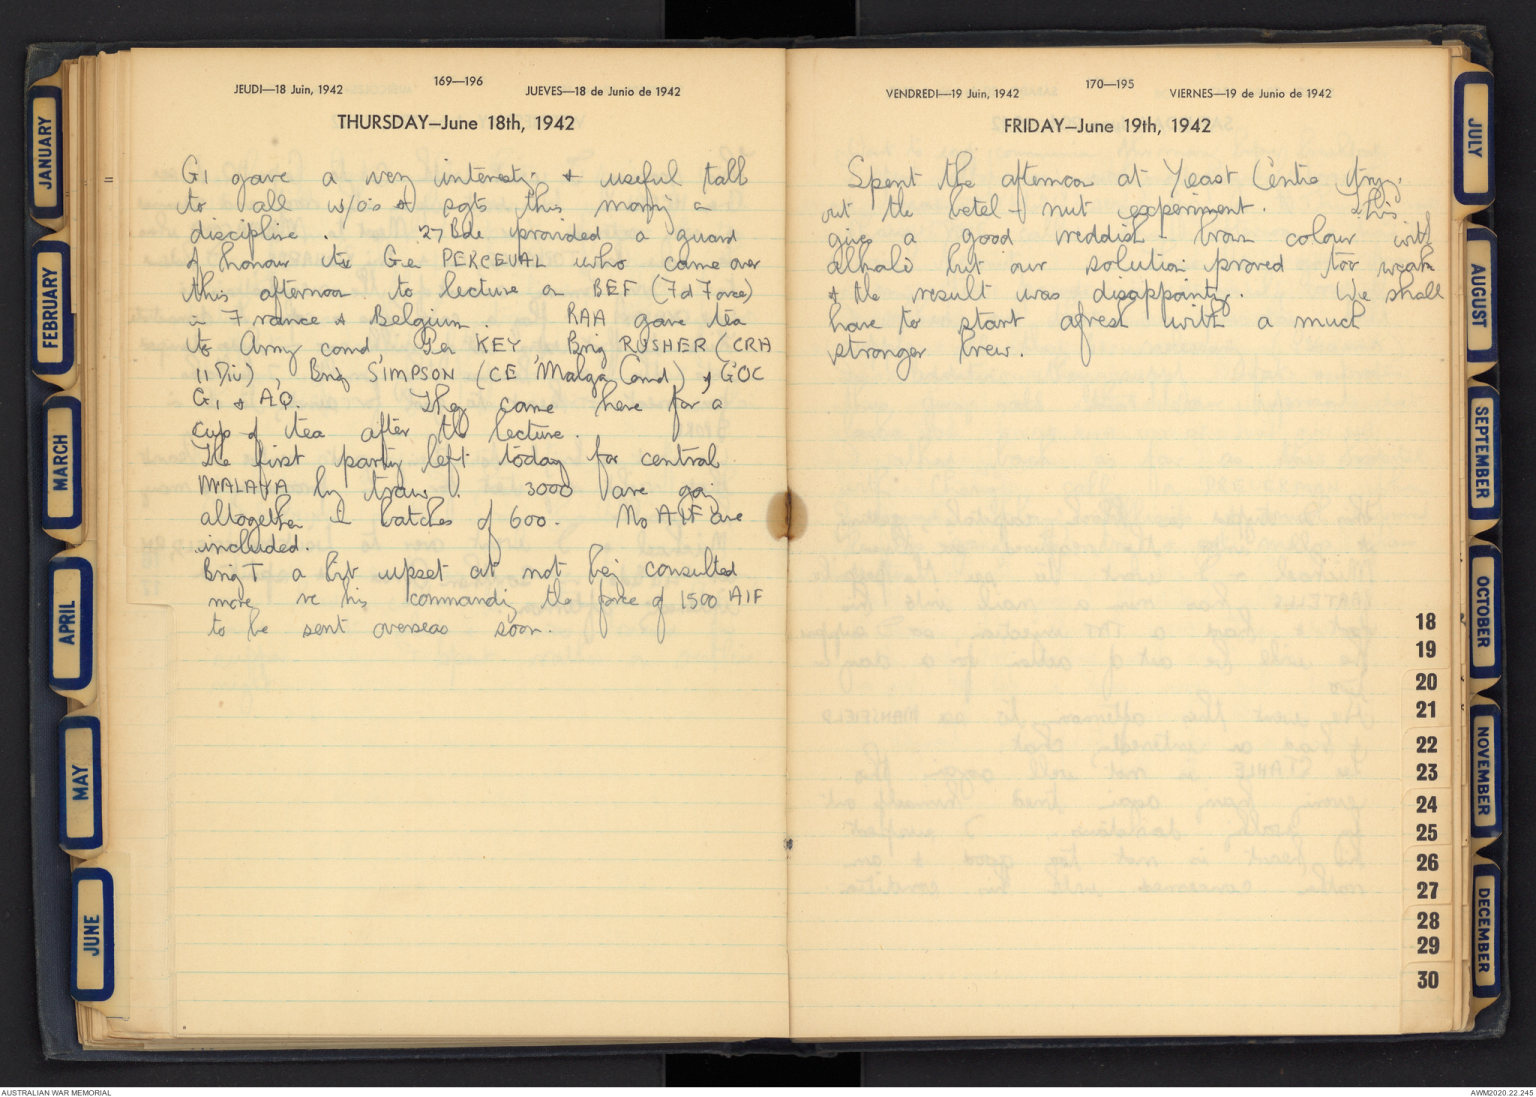 JEUDI—18 Juin, 1942
169—196
JUEVES—18 de Junio de 1942
THURSDAY—June 18th, 1942
G1 gave a very interestg & useful talk
to all w/os & sgts this morng on
discipline 27 Bde provided a guard
of honour to Gen PERCEVAL who came over
this afternoon to lecture on BEF
in France & Belgium. RAA gave tea
to Army comd, Gen KEY, Brig RUSHER (CRA
11 Div), Brig SIMPSON (CE Malaya Comd), GOC
G1 & AQ. They came here for a
cup of tea after the lecture.
The first party left today for central
MALAYA by train. 3000 are going
altogether in batches of 600. No AIF are
included.
Brig T a bit upset at not being consulted
more re his commanding the force of 1500 AIF
to be sent overseas soon.
VENDREDI—19 Juin, 1942
170—195
VIERNES—19 de Junio de 1942
FRIDAY—June 19th, 1942
Spent the afternoon at Yeast Centre tryng
out the betel-nut experiment. This
gives a good reddish-brown colour with
alkali but our solution proved too weak
& the result was disappointg. We shall
have to start afresh with a much
stronger brew.
JANUARY
FEBRUARY
MARCH
APRIL
MAY
JUNE
JULY
AUGUST
SEPTEMBER
OCTOBER
NOVEMBER
DECEMBER
18
19
20
21
22
23
24
25
26
27
28
29
30
AUSTRALIAN WAR MEMORIAL
AWM2020.22.245